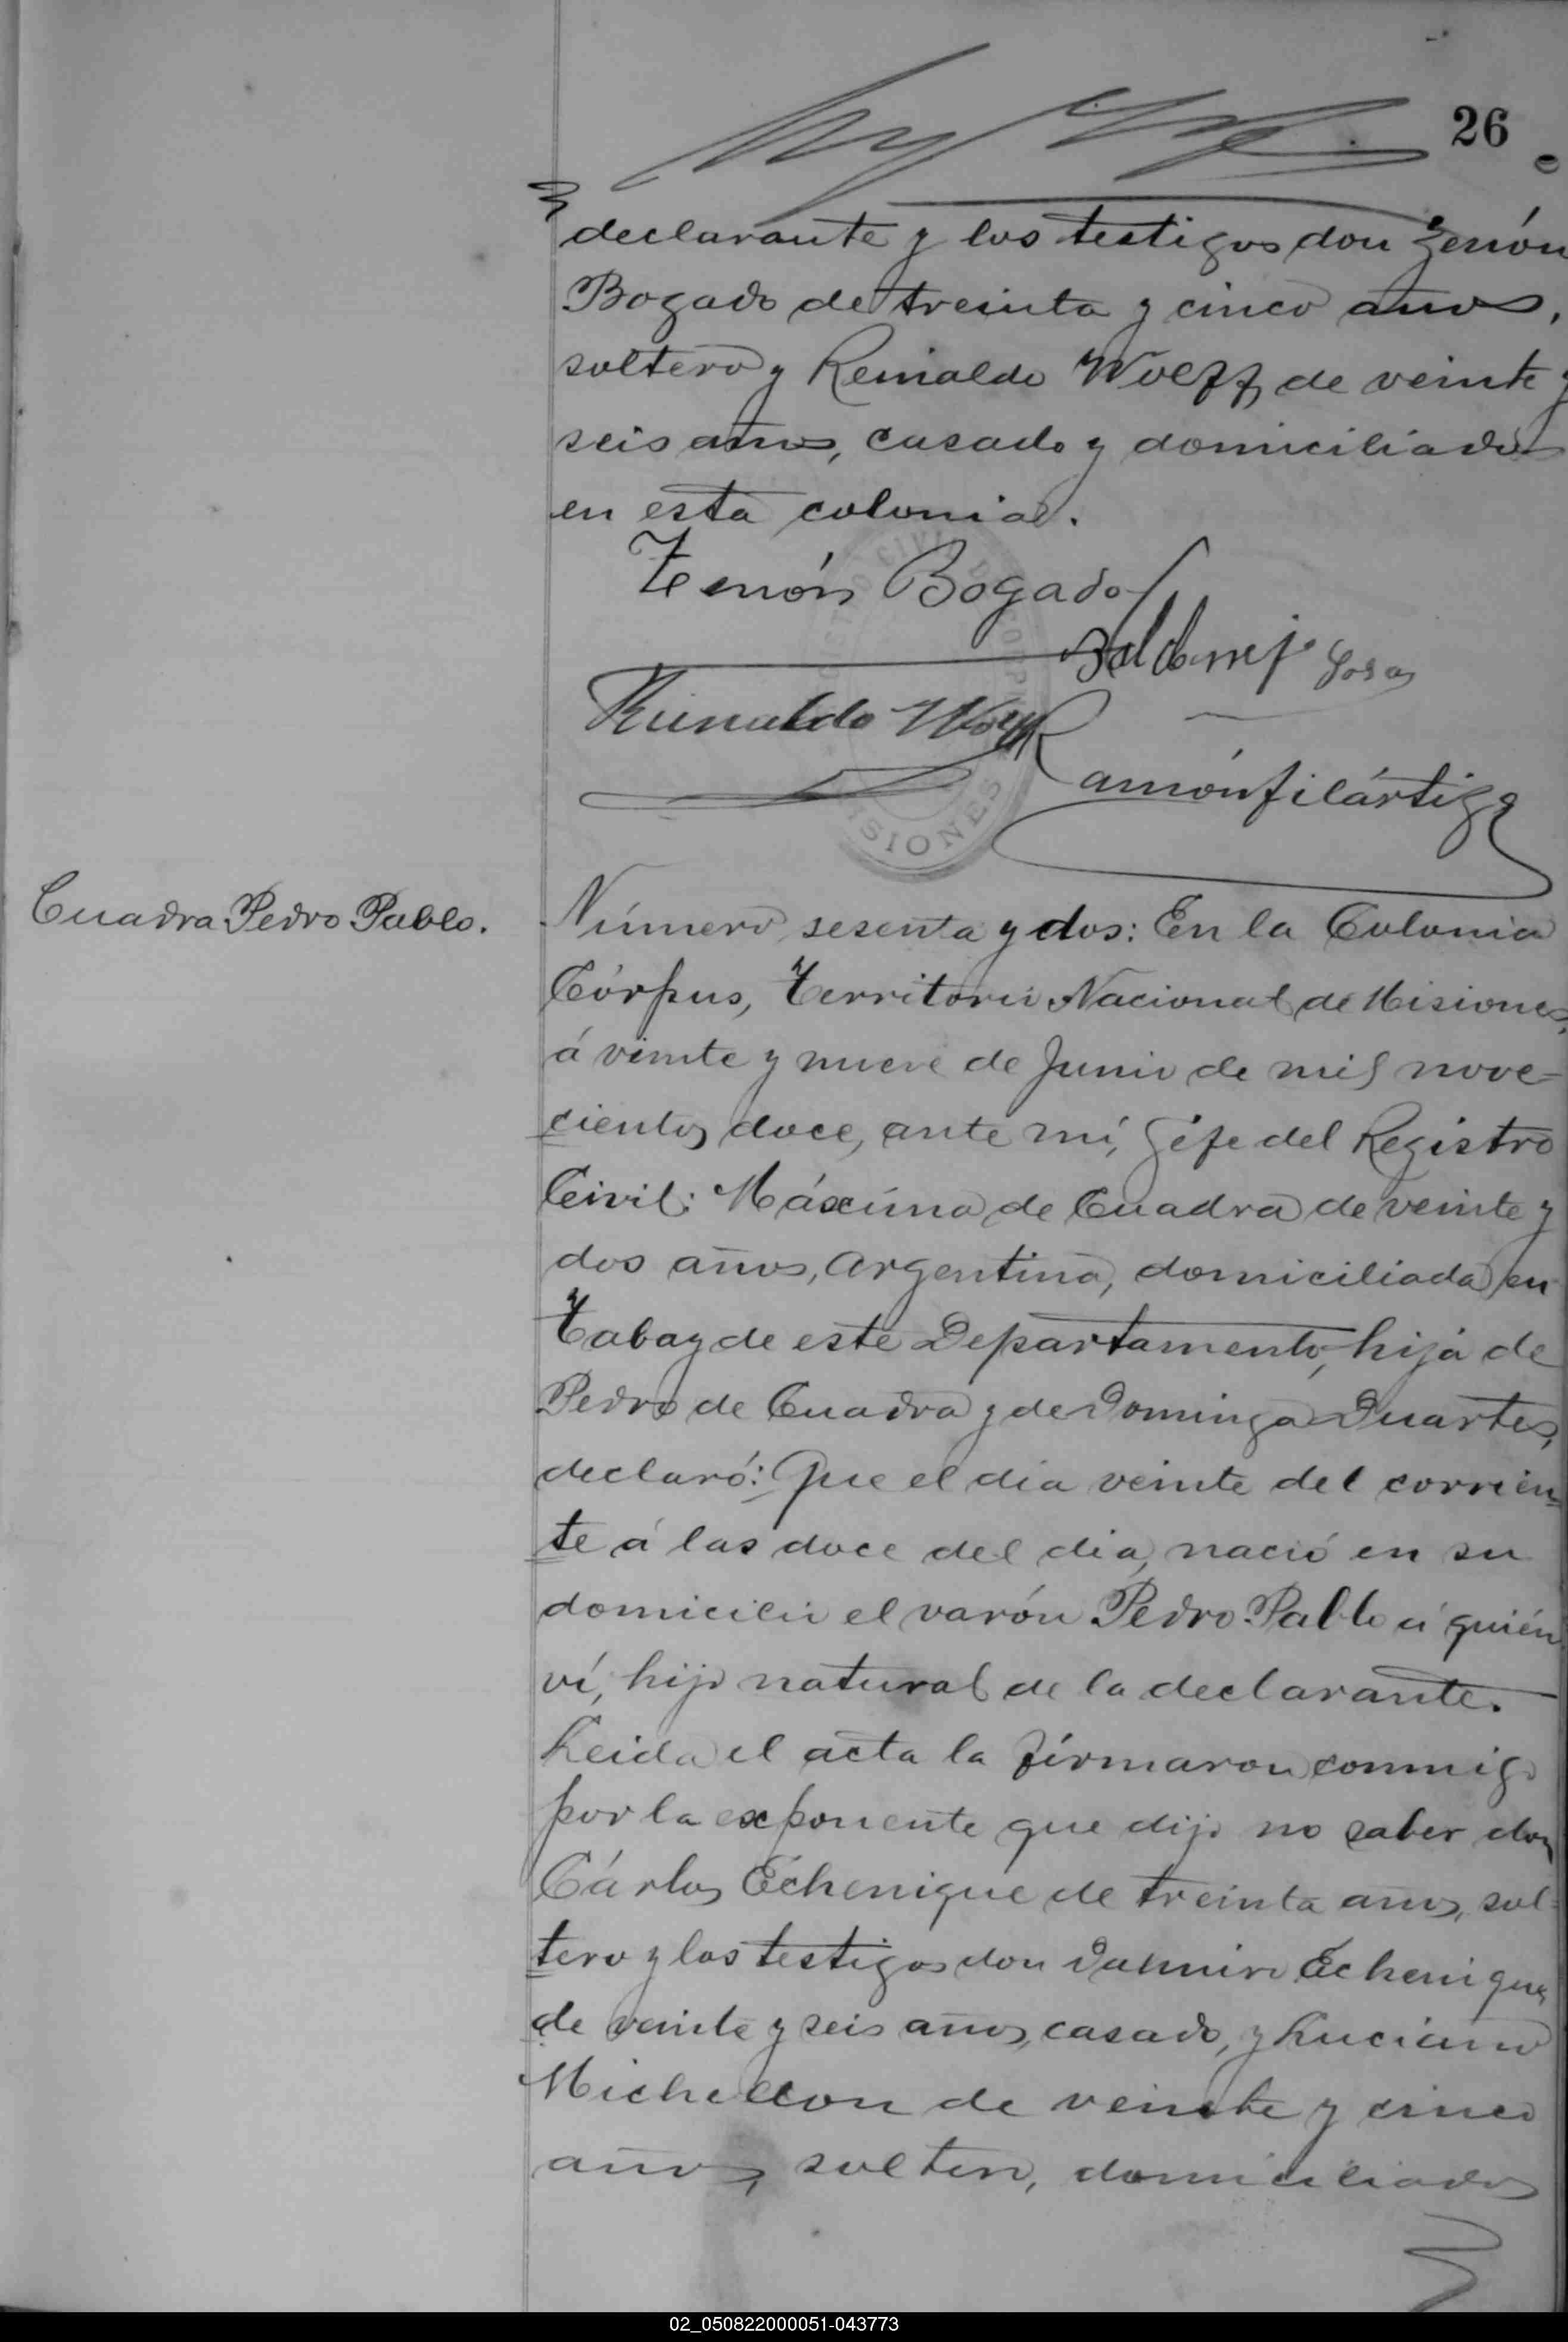 26
declarante y los testigos don Zenón
Bogado de treinta y cinco años,
soltero y Reinaldo Wolff, de veinte y
seis años, casado y domiciliados
en esta colonia.
Zenón Bogado
Sosa
Reinaldo Wolff
Ramón Filártiga
MISIONES
Cuadra Pedro Pablo.
Número sesenta y dos: En la Colonia
Córpus, Territorio Nacional de Misiones,
á veinte y nueve de Junio de mil nove-
cientos doce, ante mí, Gefe del Registro
Civil: Máxima de Cuadra de veinte y
dos años, Argentina, domiciliada en
Tabay de este Departamento, hija de
Pedro de Cuadra y de Dominga Duartes,
declaró: Que el dia veinte del corrien-
te á las doce del dia, nació en su
domicilio el varón Pedro Pablo á quién
ví, hijo natural de la declarante.
Leida el acta la firmaron conmigo
por la exponente que dijo no saber don
Cárlos Echenique de treinta años, sol-
tero y los testigos don Dalmiro Echenique
de veinte y seis años, casado, y Luciano
Michellon de veinte y cinco
años, soltero, domiciliados
02_050822000051-043773